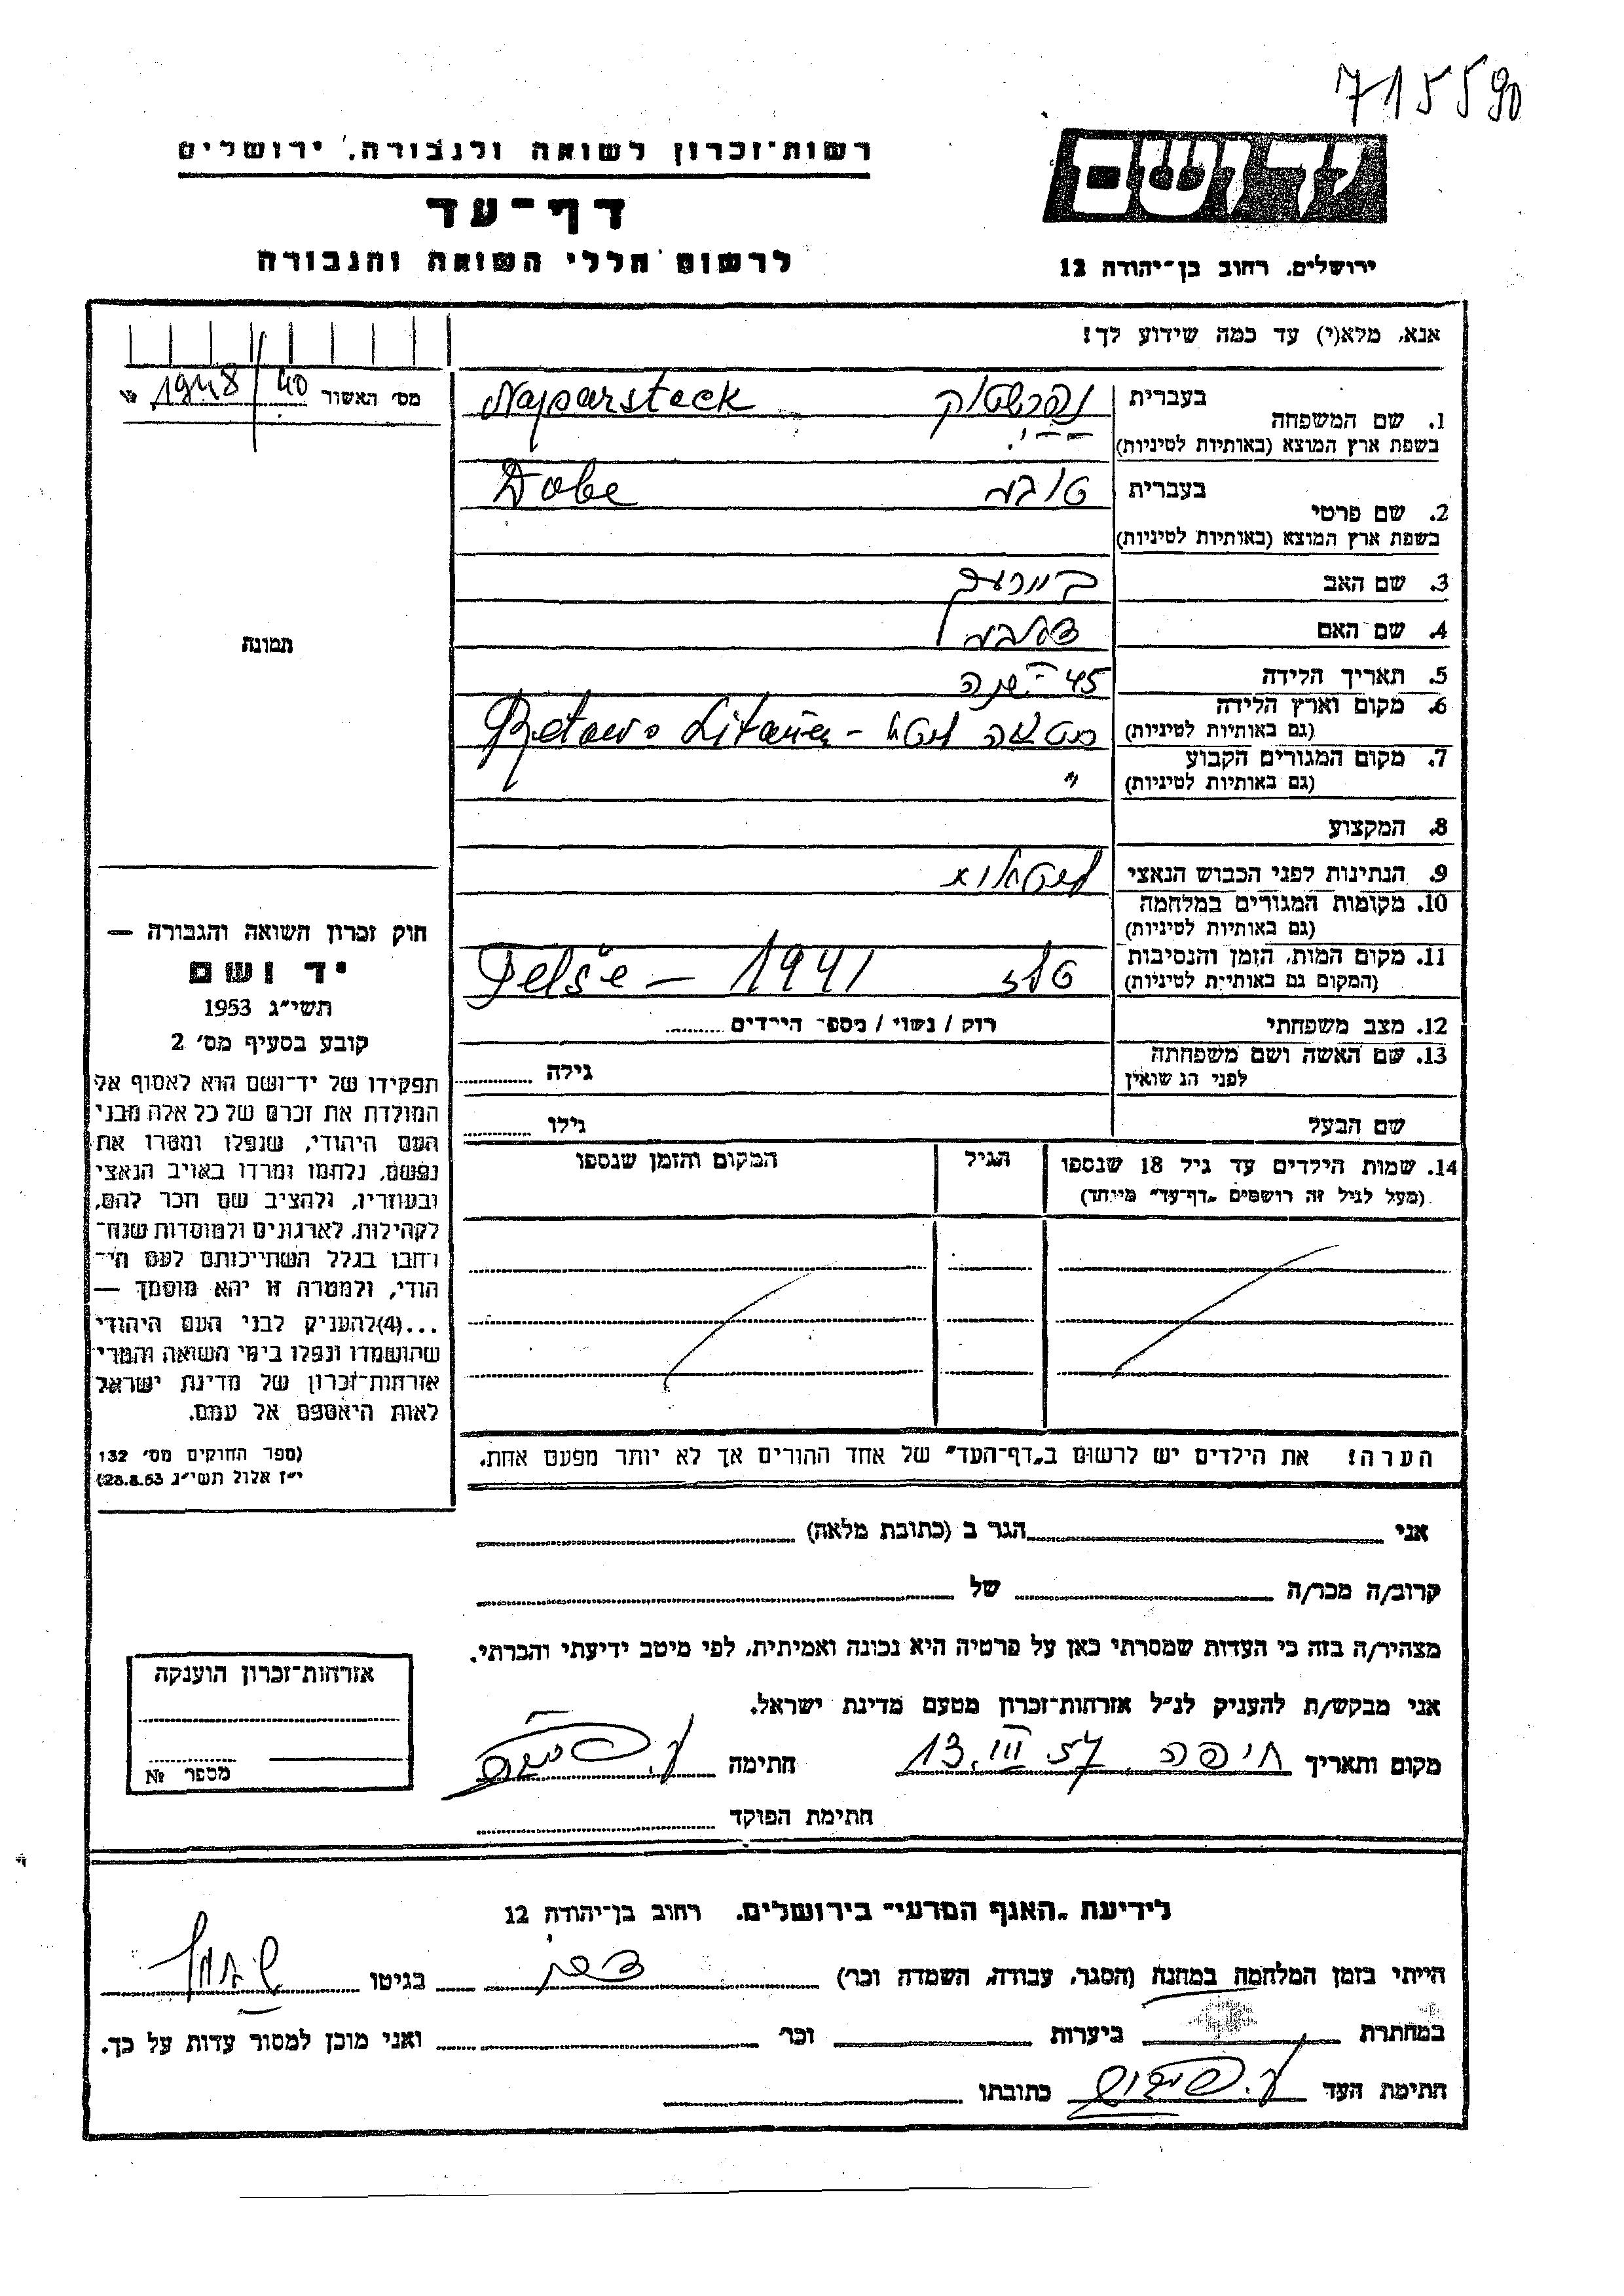 715590
יד ושם
ירושלים, רחוב בן־יהודה 12
רשות־זכרון לשואה ולגבורה, ירושלים
דף־עד
לרשום חללי השואה והגבורה
אנא, מלא(י) עד כמה שידוע לך!
מס׳ האשור 1948/40
1. שם המשפחה בעברית נפרשטק Naparsteck
בשפת ארץ המוצא (באותיות לטיניות)
2. שם פרטי בעברית טובה Dobe
בשפת ארץ המוצא (באותיות לטיניות)
3. שם האב
4. שם האם
5. תאריך הלידה 45 שנה
6. מקום וארץ הלידה Litauen
(גם באותיות לטיניות)
7. מקום המגורים הקבוע "
(גם באותיות לטיניות)
8. המקצוע
9. הנתינות לפני הכבוש הנאצי
10. מקומות המגורים במלחמה
(גם באותיות לטיניות)
11. מקום המות, הזמן והנסיבות Telše – 1941
(המקום גם באותיית לטיניות)
12. מצב משפחתי רוק / נשוי / מספר הילדים
13. שם האשה ושם משפחתה גילה
לפני הנשואין
שם הבעל גילו
14. שמות הילדים עד גיל 18 שנספו הגיל המקום והזמן שנספו
(מעל לגיל זה רושמים „דף־עד" מיוחד)
הערה! את הילדים יש לרשום ב„דף־העד" של אחד ההורים אך לא יותר מפעם אחת.
תמונה
חוק זכרון השואה והגבורה —
יד ושם
תשי״ג 1953
קובע בסעיף מס׳ 2
תפקידו של יד־ושם הוא לאסוף אל
המולדת את זכרם של כל אלה מבני
העם היהודי, שנפלו ומסרו את
נפשם, נלחמו ומרדו באויב הנאצי
ובעוזריו, ולהציב שם וזכר להם,
לקהילות, לארגונים ולמוסדות שנח־
רבו בגלל השתייכותם לעם הי־
הודי, ולמטרה זו יהא מוסמך —
...(4)להעניק לבני העם היהודי
שהושמדו ונפלו בימי השואה והמרי
אזרחות־זכרון של מדינת ישראל
לאות היאספם אל עמם.
(ספר החוקים מס׳ 132
י״ז אלול תשי״ג 28.8.53)
אני הגר ב (כתובת מלאה)
קרוב/ה מכר/ה של
מצהיר/ה בזה כי העדות שמסרתי כאן על פרטיה היא נכונה ואמיתית, לפי מיטב ידיעתי והכרתי.
אני מבקש/ת להעניק לנ״ל אזרחות־זכרון מטעם מדינת ישראל.
מקום ותאריך חיפה 13.III 57 חתימה
חתימת הפוקד
אזרחות־זכרון הוענקה
מספר №
לידיעת „האגף המדעי" בירושלים, רחוב בן־יהודה 12
הייתי בזמן המלחמה במחנה (הסגר, עבודה, השמדה וכו׳) בגיטו
במחתרת ביערות וכו׳ ואני מוכן למסור עדות על כך.
חתימת העד כתובתו